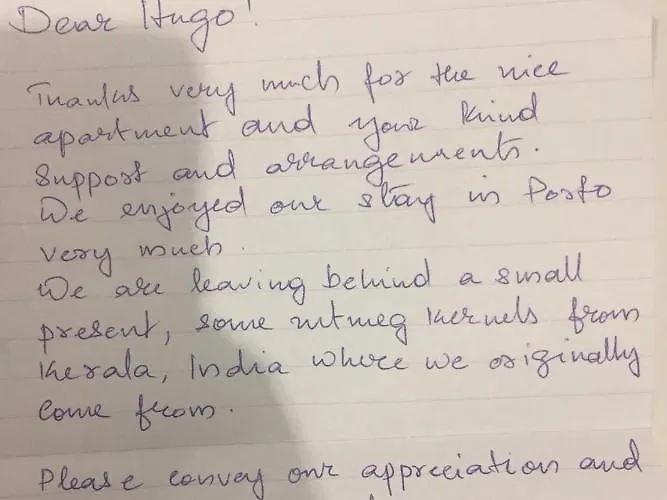 Dear Hugo!
Thanks very much for the nice
apartment and your kind
support and arrangements.
We enjoyed our stay in Porto
very much.
We are leaving behind a small
present, some nutmeg kernels from
Kerala, India where we originally
come from.
Please convey our appreciation and